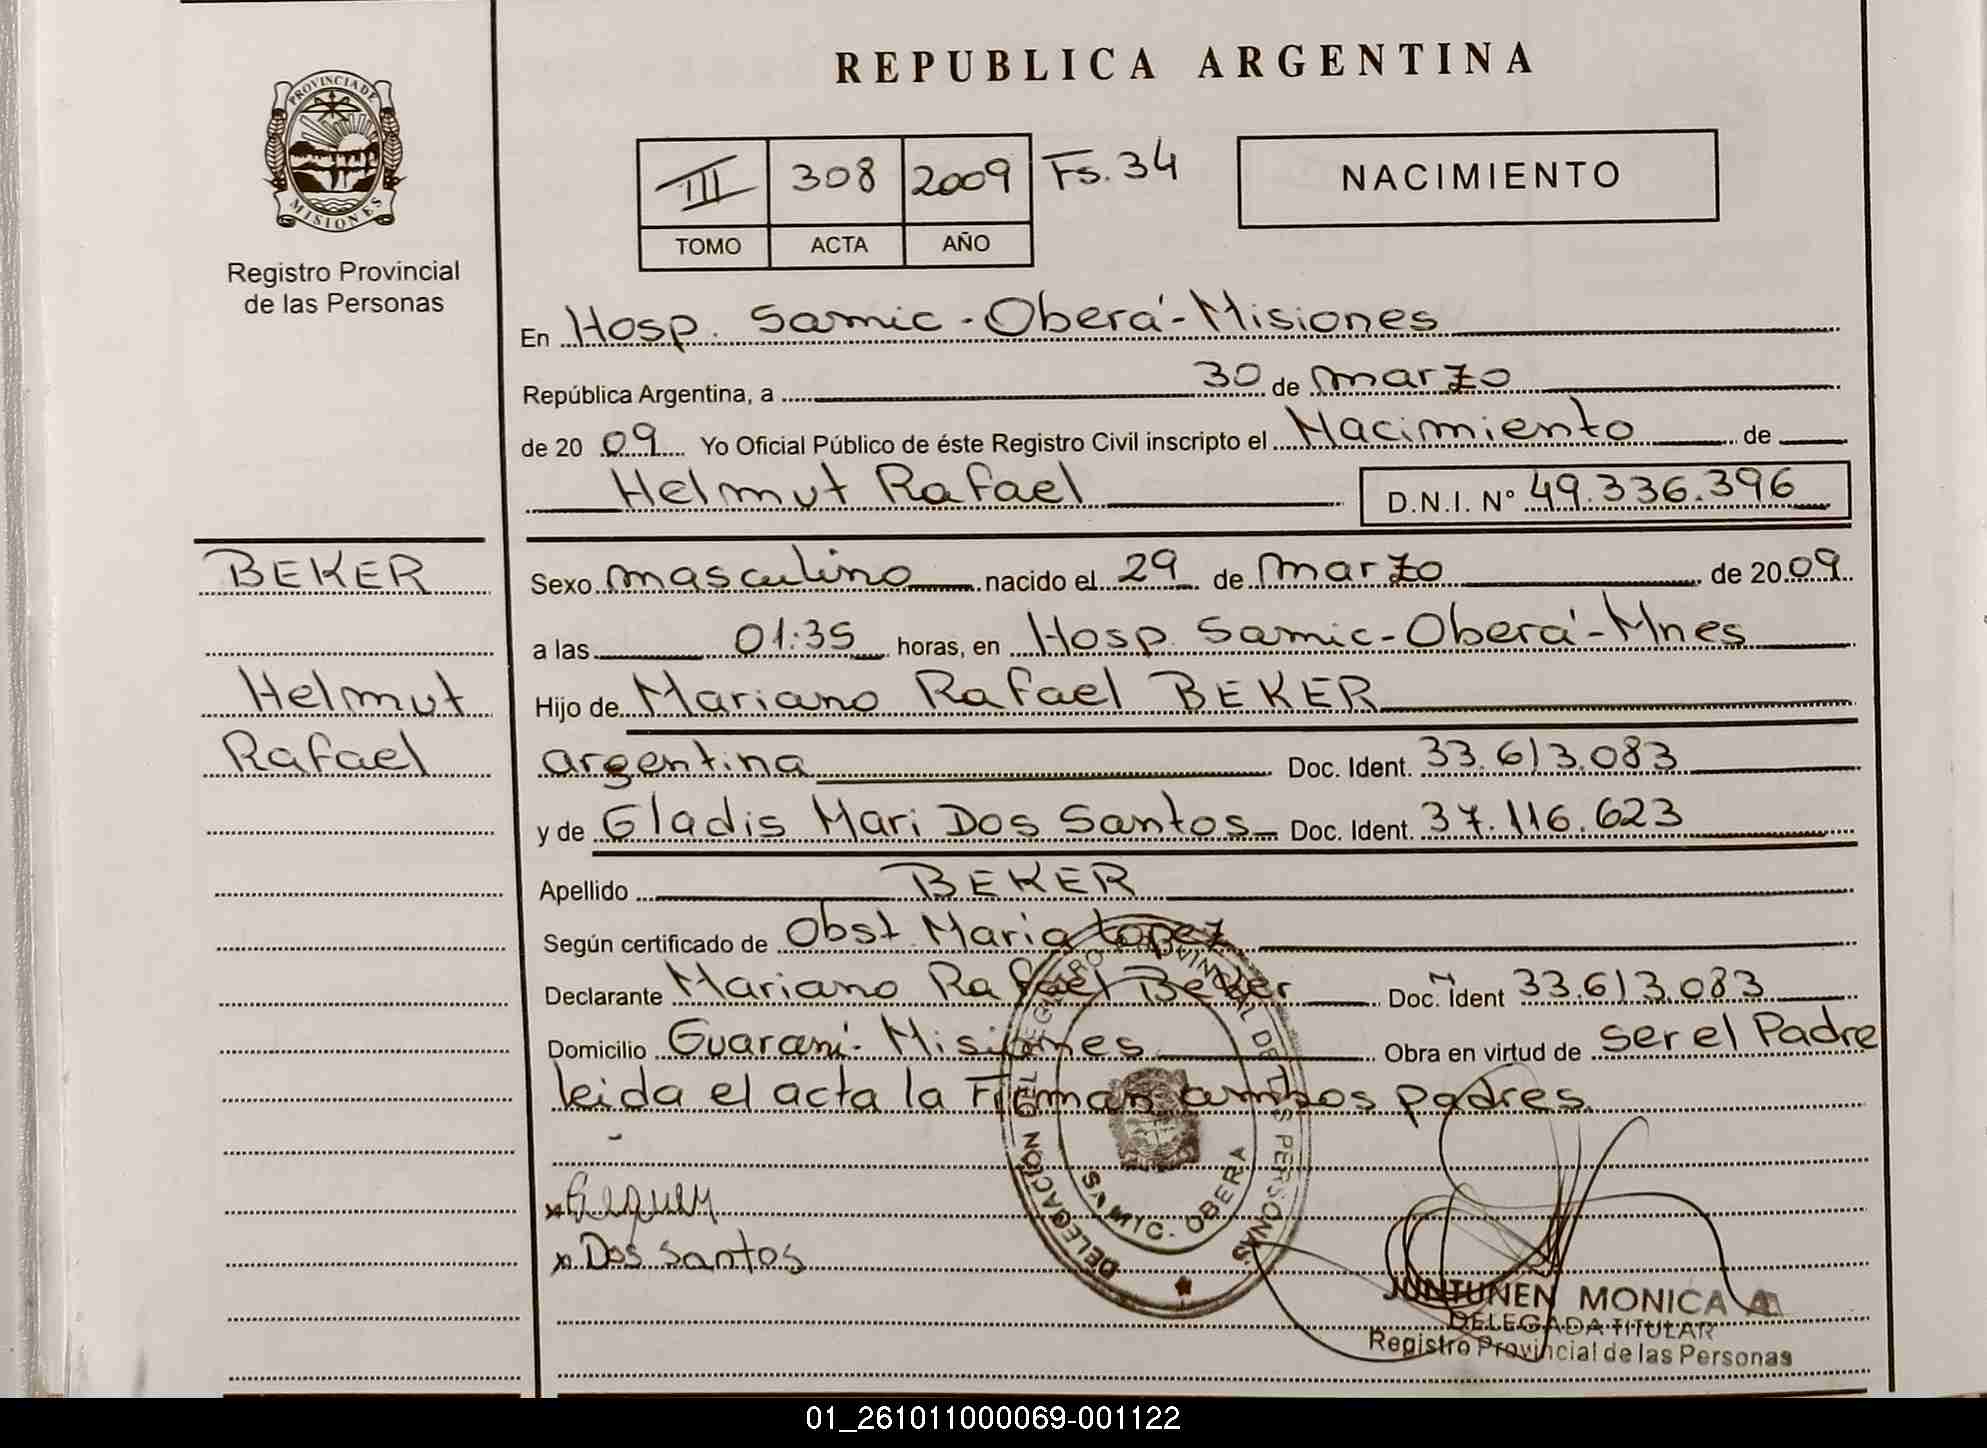 REPUBLICA ARGENTINA
PROVINCIA DE
MISIONES
Registro Provincial
de las Personas
III 308 2009 Fs. 34
TOMO ACTA AÑO
NACIMIENTO
En Hosp. Samic - Oberá - Misiones
República Argentina, a 30 de marzo
de 20 09 Yo Oficial Público de éste Registro Civil inscripto el Nacimiento de
Helmut Rafael D.N.I. N° 49.336.396
BEKER
Helmut
Rafael
Sexo masculino nacido el 29 de marzo de 20 09
a las 01:35 horas, en Hosp. Samic - Oberá - Mnes
Hijo de Mariano Rafael BEKER
argentina Doc. Ident. 33.613.083
y de Gladis Mari Dos Santos Doc. Ident. 37.116.623
Apellido BEKER
Según certificado de Obst Maria Lopez
Declarante Mariano Rafael Beker Doc. Ident 33.613.083
Domicilio Guaraní - Misiones Obra en virtud de ser el Padre
leida el acta la Firman ambos padres
x Dos Santos
DELEGACIÓN DEL REGISTRO PROVINCIAL DE LAS PERSONAS
SAMIC. OBERA
JUNTUNEN MONICA A
DELEGADA TITULAR
Registro Provincial de las Personas
01_261011000069-001122